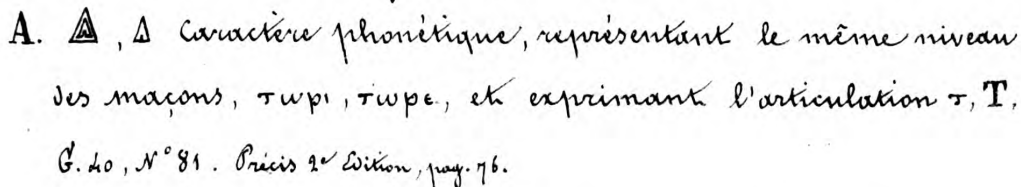 A. , Caractère phonétique, représentant le même niveau
des maçons, ⲧⲱⲣⲓ, ⲧⲱⲣⲉ, et exprimant l'articulation ⲧ, T.
G. 40, N° 81. Précis 2e Edition, pag. 76.